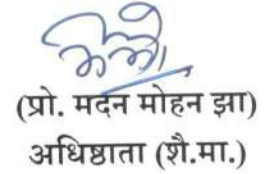 (प्रो. मदन मोहन झा)
अधिष्ठाता (शै.मा.)